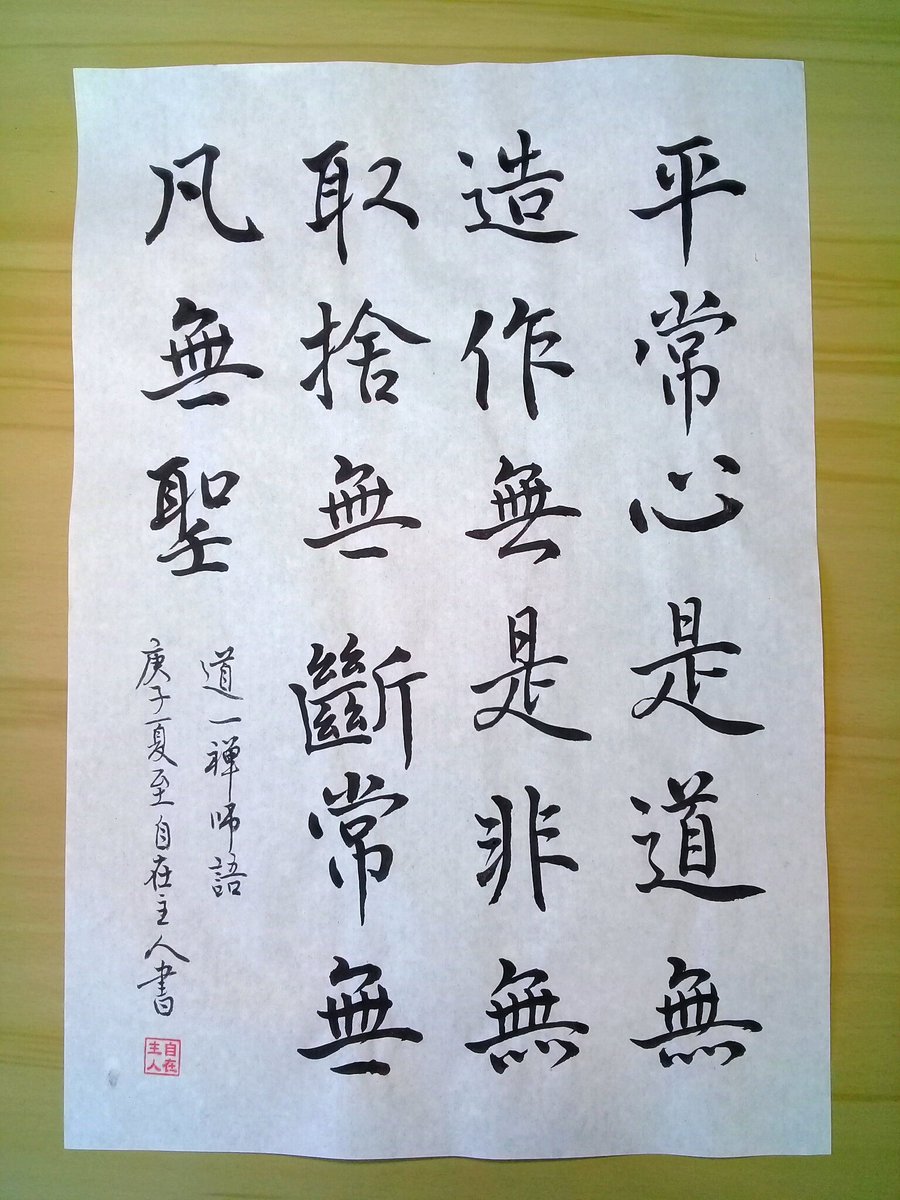 平常心是道無
造作無是非無
取捨無斷常無
凡無聖
道一禅師語
庚子夏至自在主人書
自在
主人